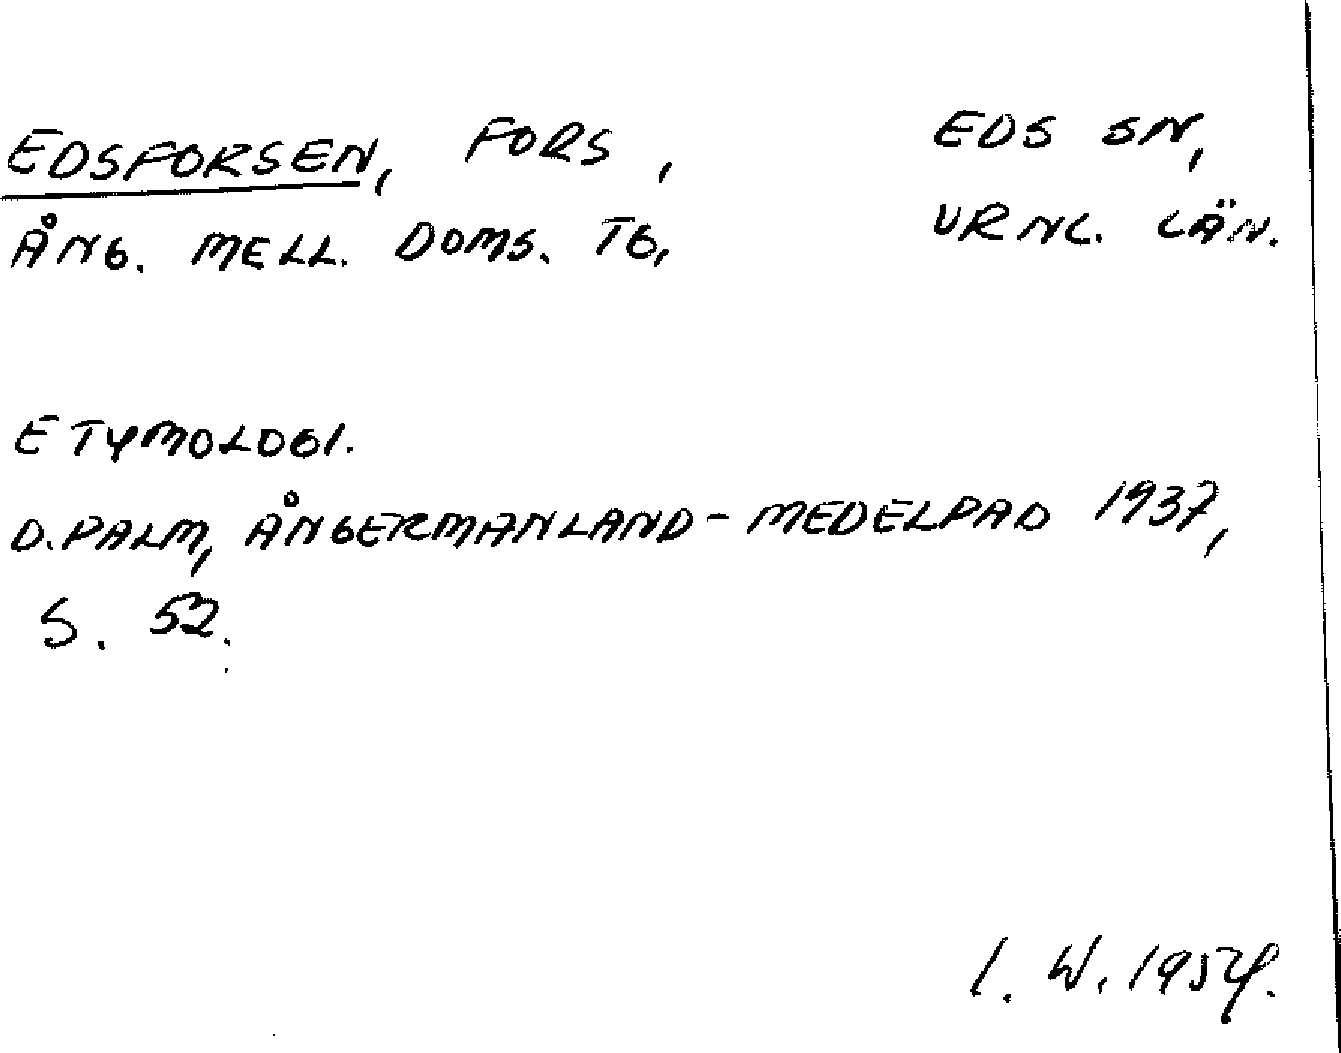 EDSFORSEN, FORS, EDS SN,
ÅNG. MELL. DOMS. TG, VRNL. LÄN.
ETYMOLOGI.
D. PALM, ÅNGERMANLAND - MEDELPAD 1937,
S. 52.
I. W. 1954.